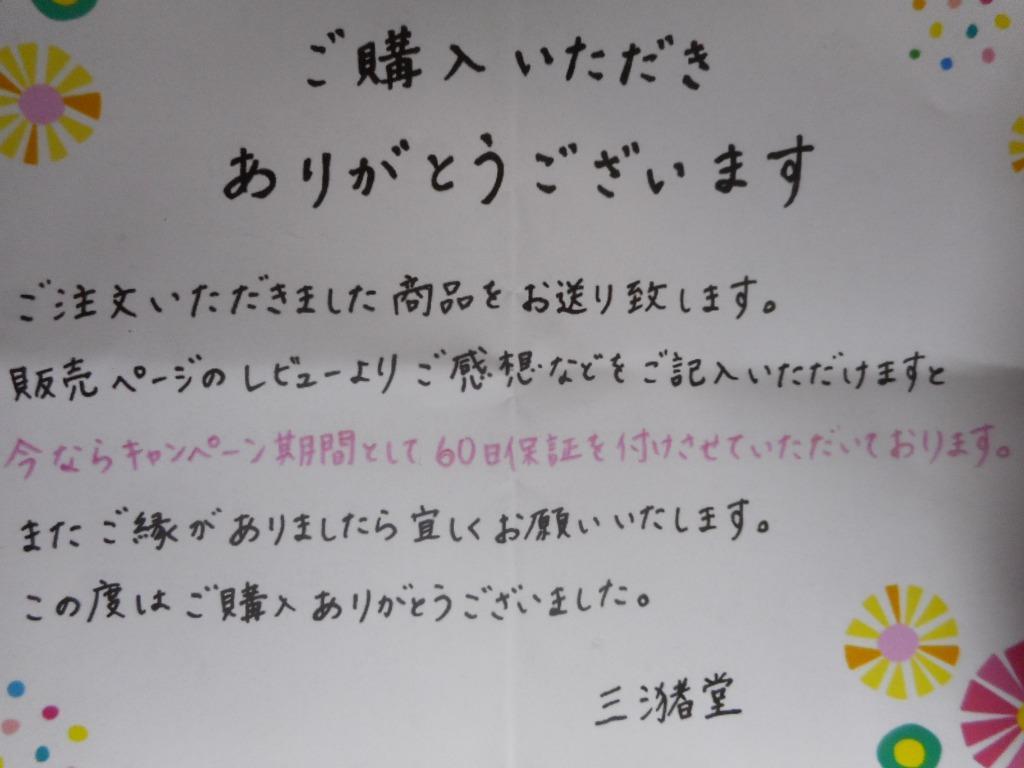 ご購入いただき
ありがとうございます
ご注文いただきました商品をお送り致します。
販売ページのレビューよりご感想などをご記入いただけますと
今ならキャンペーン期間として60日保証を付けさせていただいております。
またご縁がありましたら宜しくお願いいたします。
この度はご購入ありがとうございました。
三瀦堂